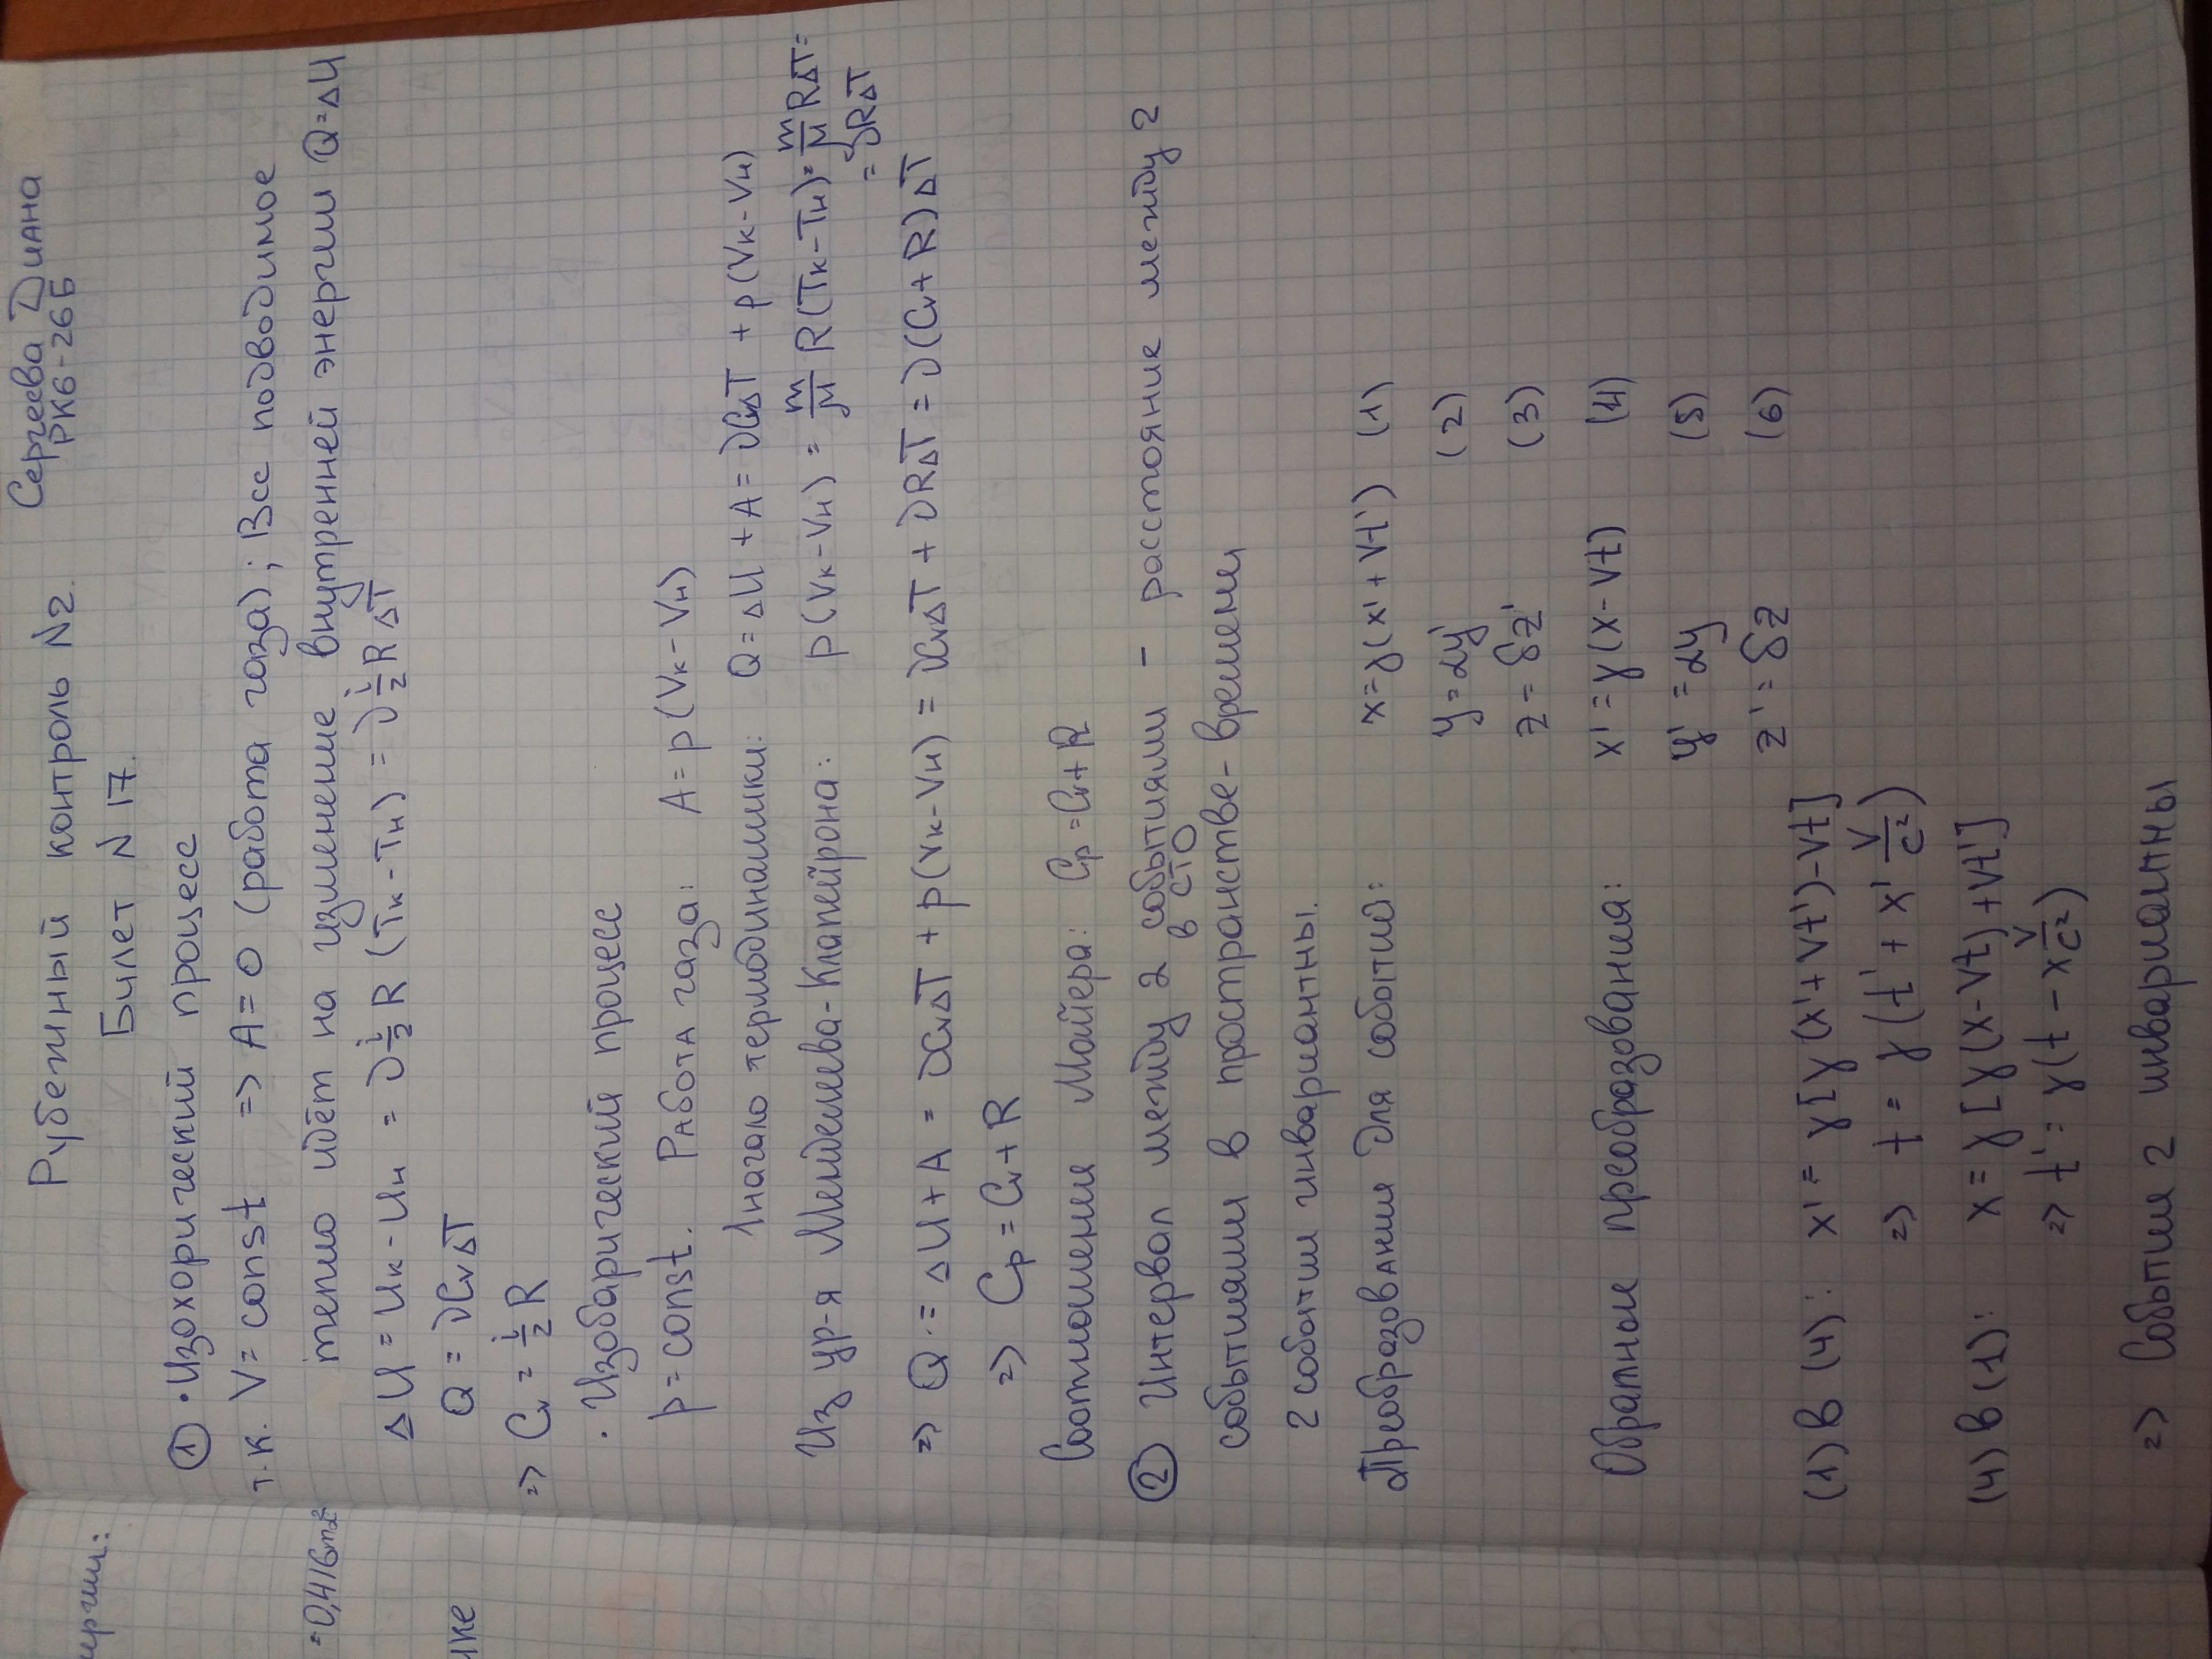 Рубежный контроль N2.
Сергеева Диана
РК6-26Б
Билет N 17.
① • Изохорический процесс
т.к. V = const => A = 0 (работа газа); Всё подводимое
тепло идёт на изменение внутренней энергии Q = ΔU
ΔU = Uк - Uн = ν i/2 R (Tк - Tн) = ν i/2 R ΔT
Q = νCvΔT
=> Cv = i/2 R
• Изобарический процесс
p = const. Работа газа: A = p(Vк - Vн)
1 начало термодинамики: Q = ΔU + A = νCvΔT + p(Vк - Vн)
Из ур-я Менделеева-Клапейрона: p(Vк - Vн) = m/μ R(Tк - Tн) = m/μ RΔT =
= νRΔT
=> Q = ΔU + A = νCvΔT + p(Vк - Vн) = νCvΔT + νRΔT = ν(Cv + R)ΔT
=> Cp = Cv + R
Соотношение Майера: Cp = Cv + R
② Интервал между 2 событиями – расстояние между 2
в СТО
событиями в пространстве-времени
2 события инвариантны.
Преобразования для событий: x = γ(x' + Vt') (1)
y = αy' (2)
z = δz' (3)
Обратные преобразования: x' = γ(x - Vt) (4)
y' = αy (5)
z' = δz (6)
(1) в (4): x' = γ[γ(x' + Vt') - Vt]
=> t = γ(t' + x' V/c²)
(4) в (1): x = γ[γ(x - Vt) + Vt']
=> t' = γ(t - x V/c²)
=> События 2 инвариантны
ергии:
=0,416
ике